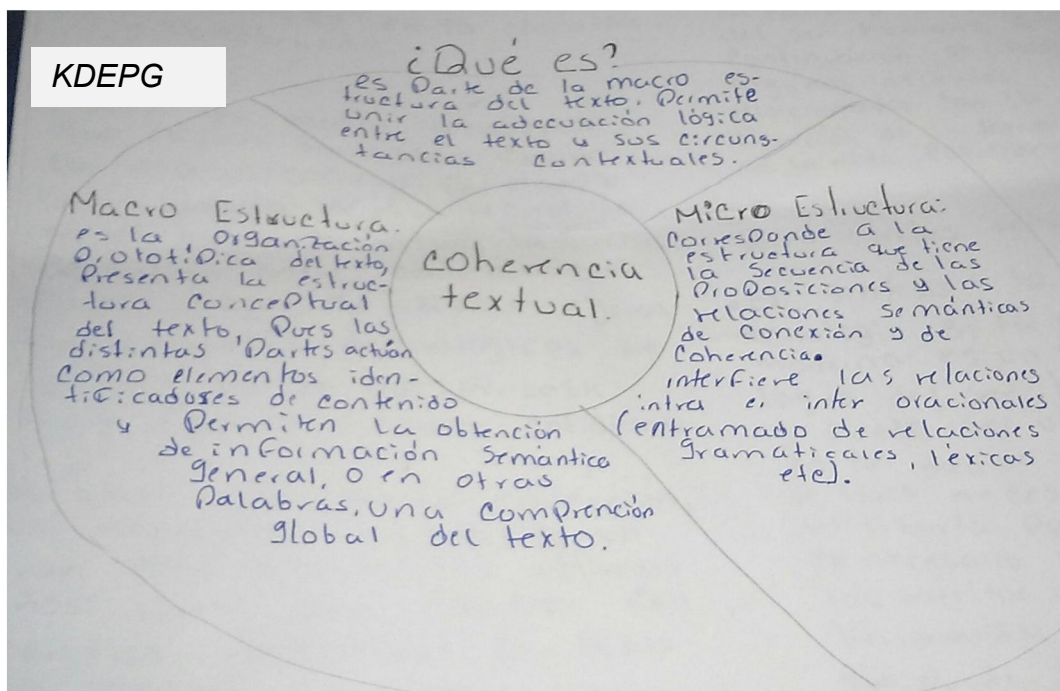 KDEPG
¿Qué es?
es Parte de la macro es-
tructura del texto. Permite
unir la adecuación lógica
entre el texto y sus circuns-
tancias contextuales.
coherencia
textual.
Macro Estructura.
es la Organización
Prototípica del texto,
Presenta la estruc-
tura conceptual
del texto, Pues las
distintas Partes actúan
como elementos iden-
tificadores de contenido
y Permiten la obtención
de información semántica
general, o en otras
Palabras, una comprención
global del texto.
Micro Estructura:
Corresponde a la
estructura que tiene
la secuencia de las
Proposiciones y las
relaciones semánticas
de conexión y de
Coherencia.
interfiere las relaciones
intra e inter oracionales
(entramado de relaciones
gramaticales, léxicas
etc).